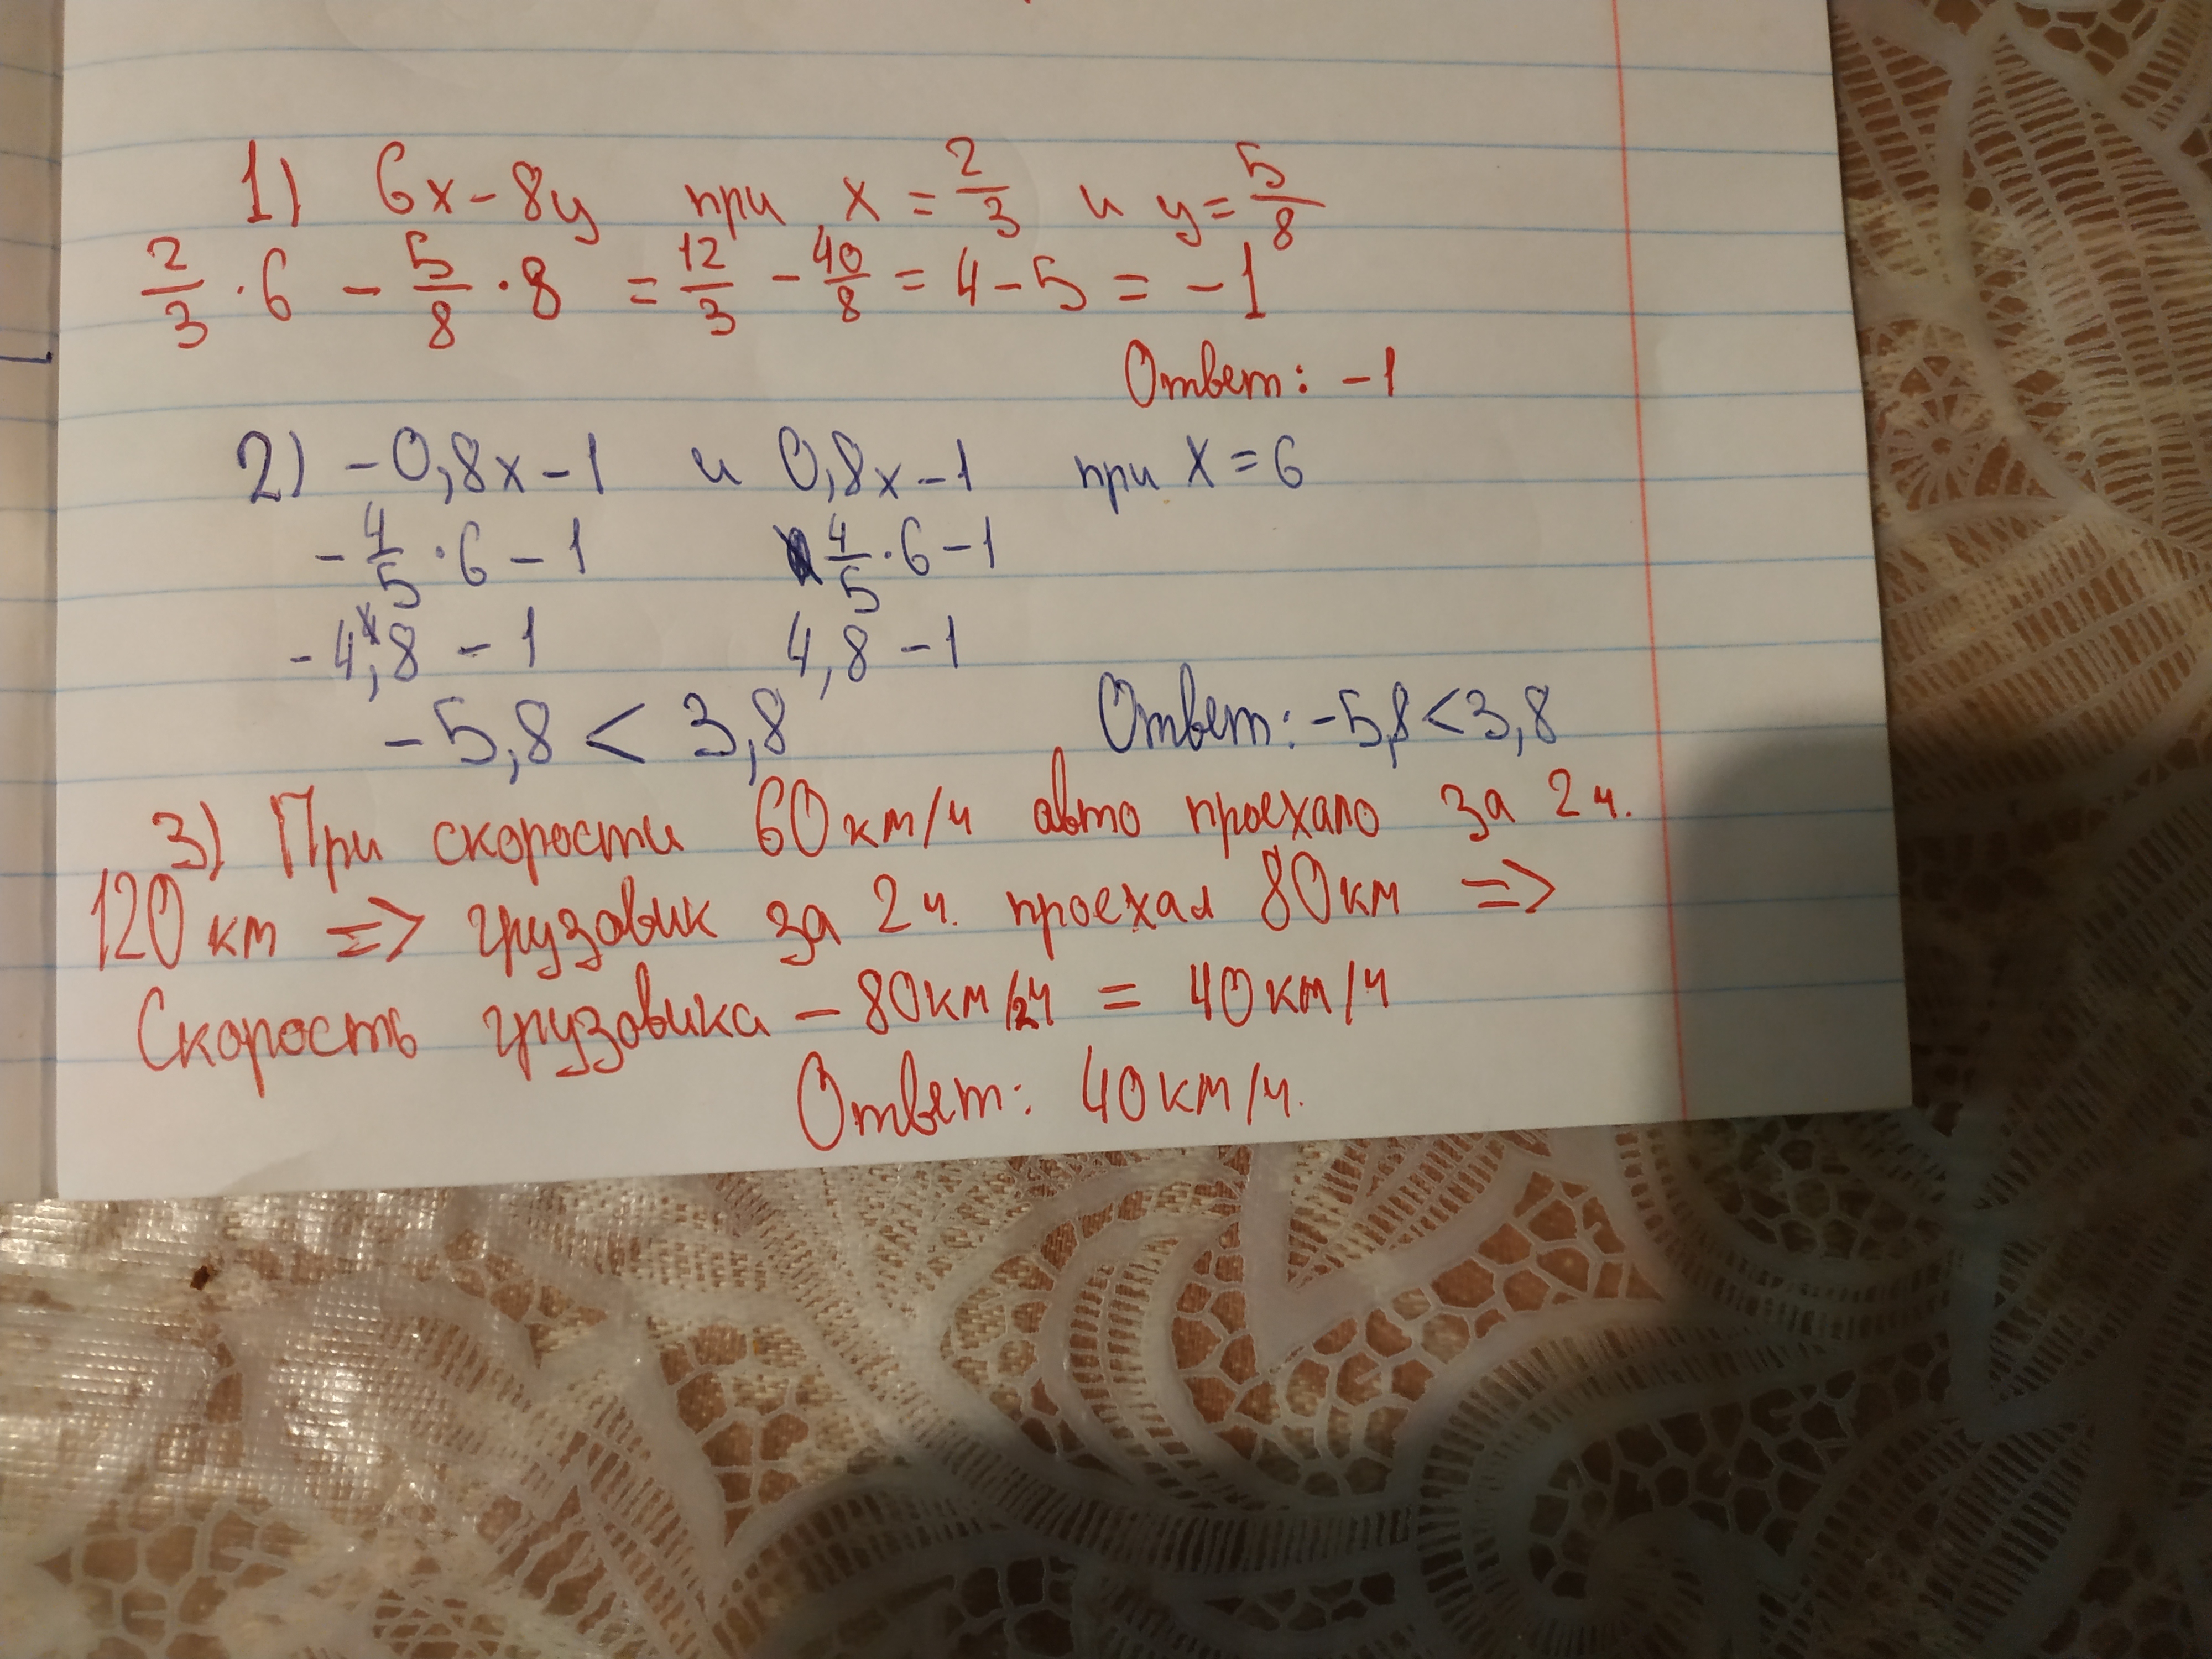 1) 6x-8y при x = 2/3 и y = 5/8
2/3 · 6 - 5/8 · 8 = 12/3 - 40/8 = 4-5 = -1
Ответ: -1
2) -0,8x-1 и 0,8x-1 при x=6
-4/5 · 6 - 1 4/5 · 6 - 1
-4,8 - 1 4,8 - 1
-5,8 < 3,8 Ответ: -5,8 < 3,8
3) При скорости 60км/ч авто проехало за 2ч.
120 км => грузовик за 2ч. проехал 80км =>
Скорость грузовика - 80км/2ч = 40км/ч
Ответ: 40км/ч.